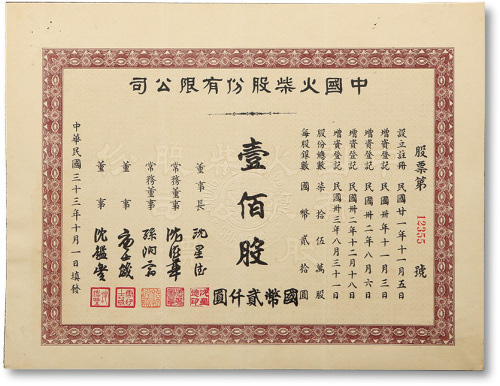 中國火柴股份有限公司
股票第 12355 號
設立註冊 民國廿一年十一月五日
增資登記 民國卅年十一月三日
增資登記 民國卅二年八月六日
增資登記 民國卅二年十二月十八日
增資登記 民國卅三年八月三十一日
股份總數 柒拾伍萬股
每股銀數 國幣貳拾圓
壹佰股
國幣貳仟圓
董事長 沈星德
常務董事
常務董事 孫洞
董事
董事 沈鑑堂
中華民國三十三年十月一日填發